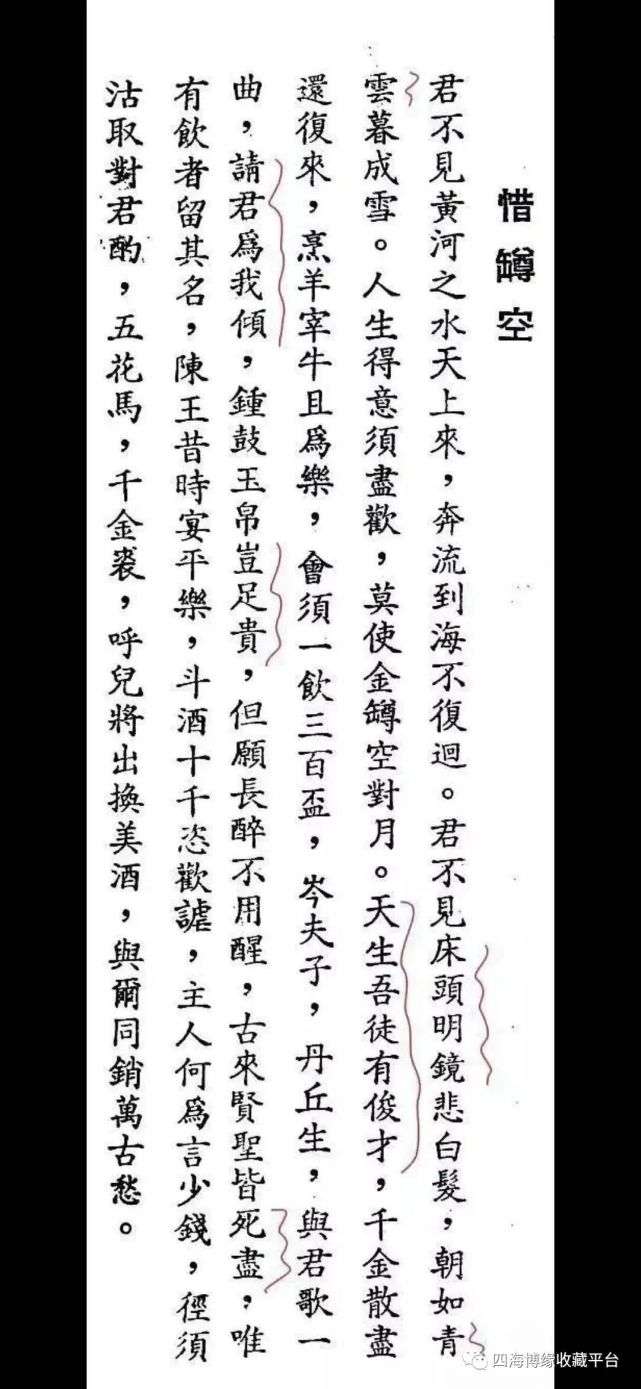 惜罇空
君不見黃河之水天上來，奔流到海不復迴。君不見床頭明鏡悲白髮，朝如青
雲暮成雪。人生得意須盡歡，莫使金罇空對月。天生吾徒有俊才，千金散盡
還復來，烹羊宰牛且爲樂，會須一飲三百盃，岑夫子，丹丘生，與君歌一
曲，請君爲我傾，鍾鼓玉帛豈足貴，但願長醉不用醒，古來賢聖皆死盡，唯
有飲者留其名，陳王昔時宴平樂，斗酒十千恣歡謔，主人何爲言少錢，徑須
沽取對君酌，五花馬，千金裘，呼兒將出換美酒，與爾同銷萬古愁。
四海博缘收藏平台